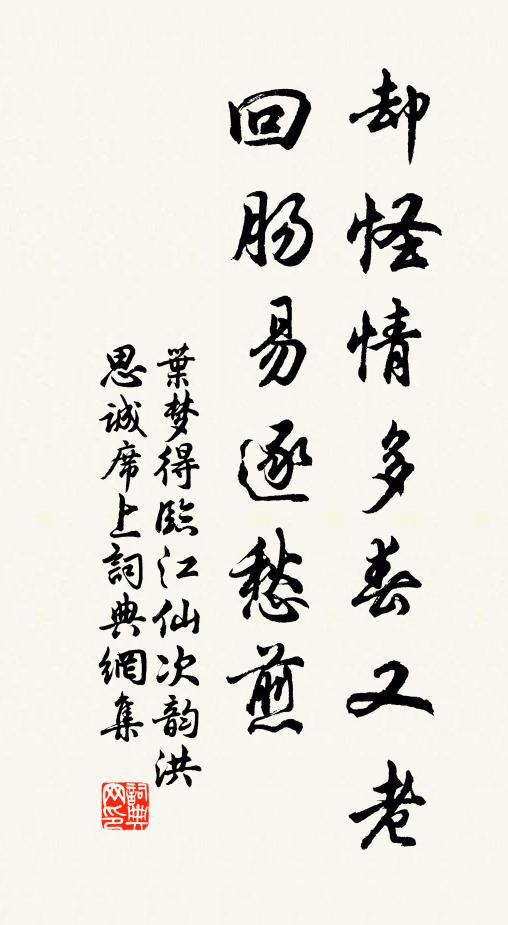 却怪情多春又老
回肠易逐愁煎
葉梦得臨江仙次韵洪
思诚席上詞典網集
詞典网印